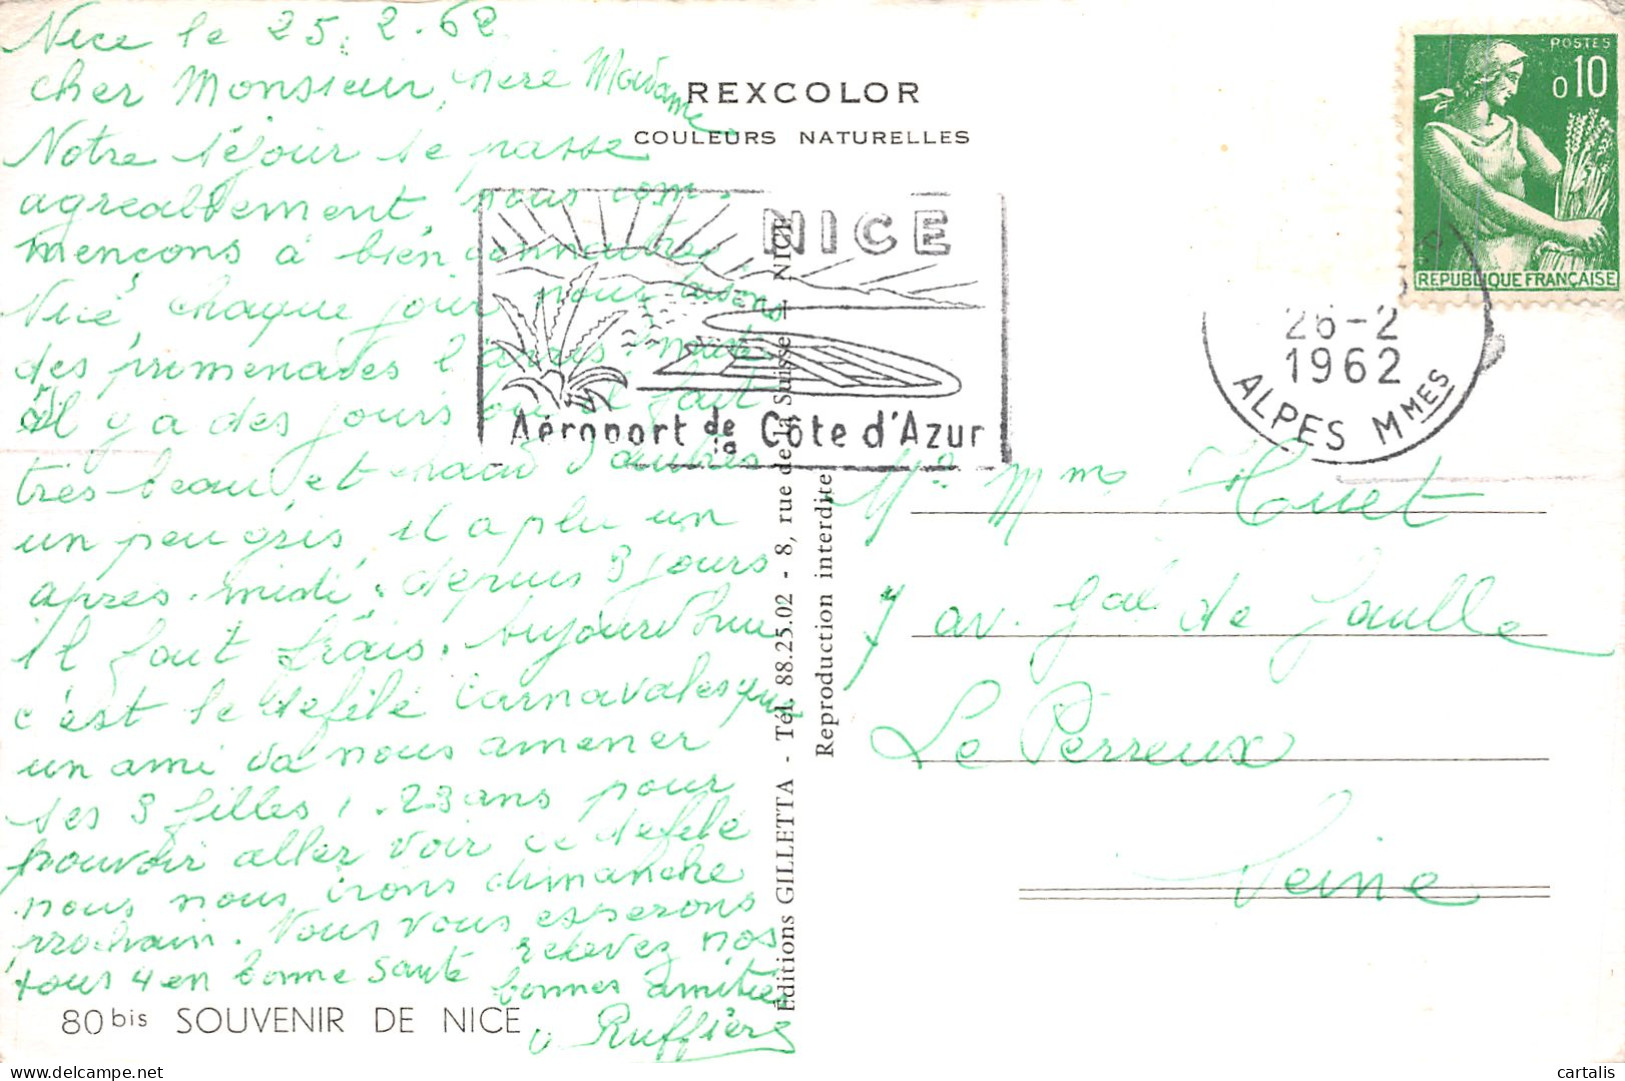 Nice le 25.2.62
cher Monsieur, chère Madame
Notre séjour se passe
agréablement, nous com-
mençons à bien connaître
Nice, chaque jour nous faisons
des promenades
il y a des jours où il fait
très beau et chaud d'autres
un peu gris, il a plu un
après-midi. depuis 3 jours
il fait frais. Aujourd'hui
c'est le défilé Carnavalesque
un ami va nous amener
ses 3 filles, 23 ans pour
pouvoir aller voir ce défilé
nous nous irons dimanche
prochain. Nous vous espérons
tous 4 en bonne santé recevez nos
bonnes amitiés
Ruffière
80 bis SOUVENIR DE NICE
REXCOLOR
COULEURS NATURELLES
NICE
Aéroport de la Côte d'Azur
Éditions GILLETTA - Tél. 88.25.02 - 8, rue de la Suisse - NICE
Reproduction interdite
POSTES
0,10
REPUBLIQUE FRANÇAISE
26-2
1962
ALPES MMES
Mr Mme Huet
7 av. Gal de Gaulle
Le Perreux
Seine
delcampe.net
cartalis